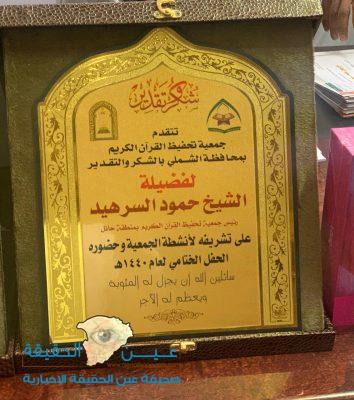 شكر وتقدير
تتقدم
جمعية تحفيظ القرآن الكريم
بمحافظة الشملي بالشكر والتقدير
لفضيلة
الشيخ حمود السرهيد
رئيس جمعية تحفيظ القرآن الكريم بمنطقة حائل
على تشريفه لأنشطة الجمعية وحضوره
الحفل الختامي لعام ١٤٤٠هـ
سائلين الله أن يجزل له المثوبة
ويعظم له الأجر
عين الحقيقة
صحيفة عين الحقيقة الإخبارية